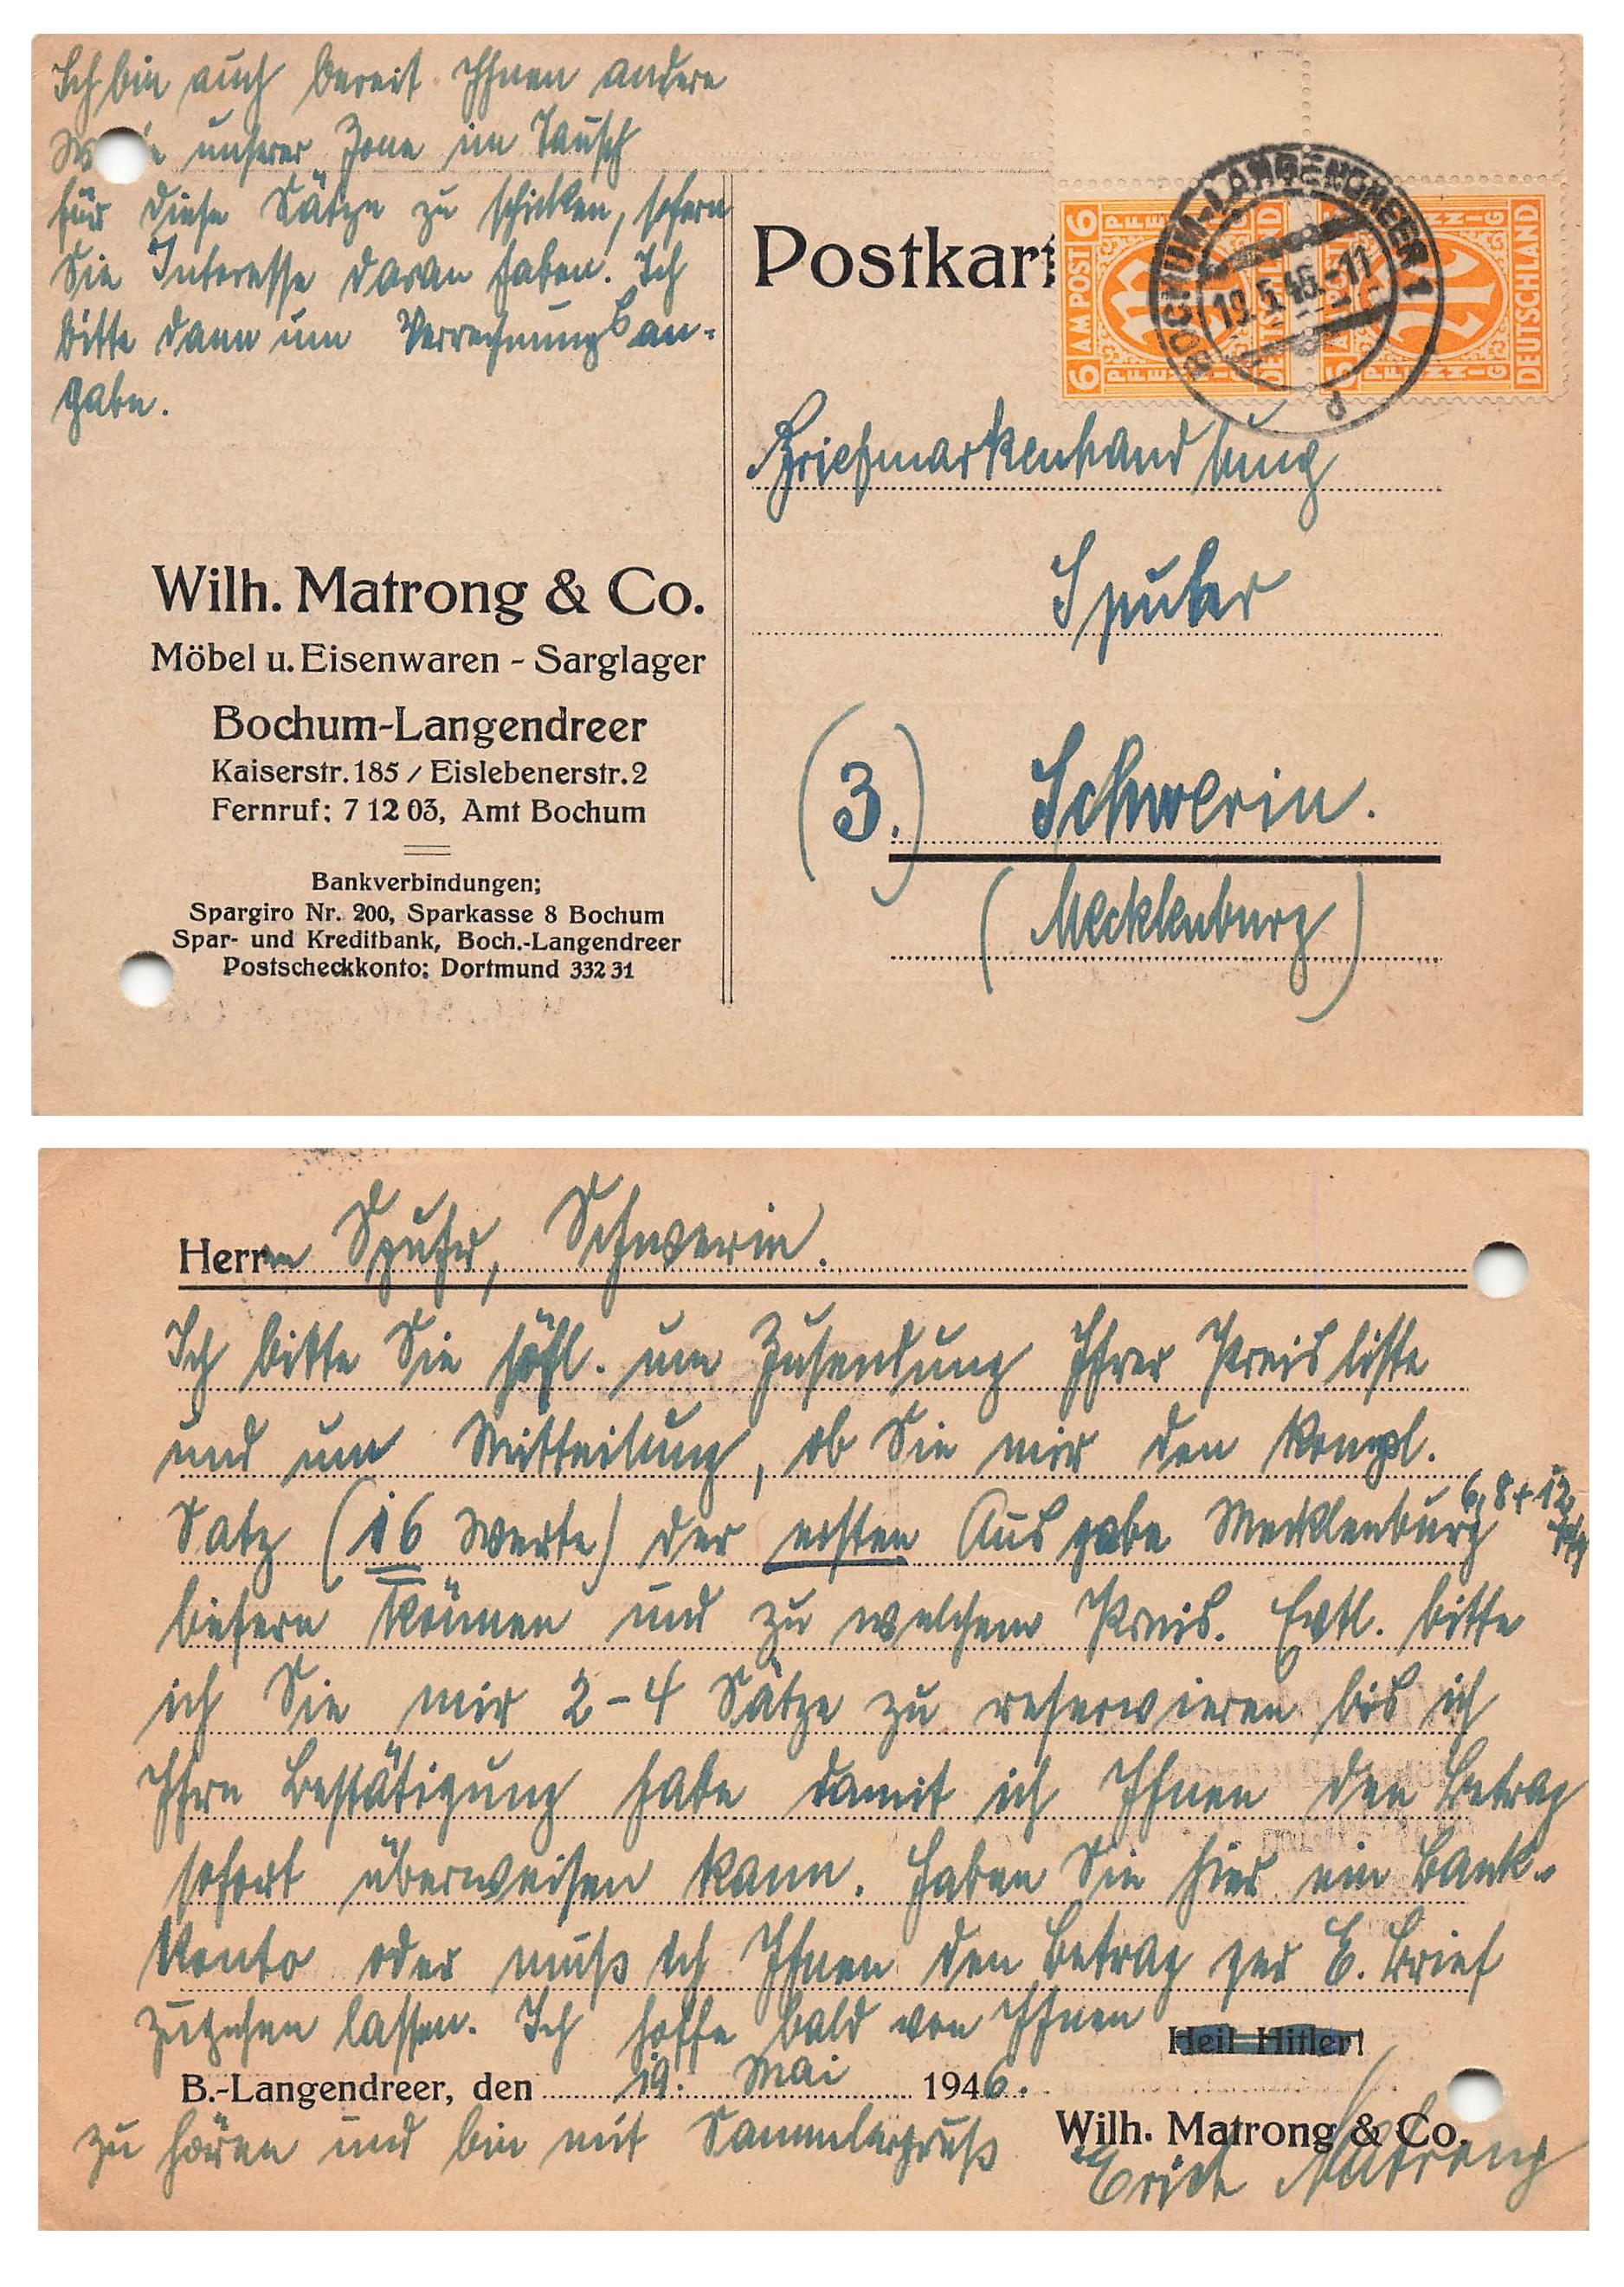 Ich bin auch bereit Ihnen andere
unserer Zone im Tausch
für diese Sätze zu schicken, sofern
Sie Interesse daran haben. Ich
bitte dann um Verrechnungsan-
gabe.
Wilh. Matrong & Co.
Möbel u. Eisenwaren - Sarglager
Bochum-Langendreer
Kaiserstr. 185 / Eislebenerstr. 2
Fernruf: 7 12 03, Amt Bochum
Bankverbindungen:
Spargiro Nr. 200, Sparkasse 8 Bochum
Spar- und Kreditbank, Boch.-Langendreer
Postscheckkonto: Dortmund 332 31
Postkart
6 AM POST 6
PFENNIG
DEUTSCHLAND
BOCHUM-LANGENDREER 1
19.5.46.-11
d
Briefmarkenhandlung
(3.) Schwerin.
(Mecklenburg)
Herrn Schwerin.
Ich bitte Sie höfl. um Zusendung Ihrer Preisliste
und um Mitteilung, ob Sie mir den kompl.
Satz (16 Werte) der ersten Ausgabe Mecklenburg 6, 8 + 12 Pfg
liefern können und zu welchem Preis. Evtl. bitte
ich Sie mir 2-4 Sätze zu reservieren bis ich
Ihre Bestätigung habe damit ich Ihnen den Betrag
sofort überweisen kann. Haben Sie hier ein Bank-
Konto oder muß ich Ihnen den Betrag per E. Brief
zugehen lassen. Ich hoffe bald von Ihnen
Heil Hitler!
B.-Langendreer, den 19. Mai 1946.
zu hören und bin mit Sammlergruß
Wilh. Matrong & Co.
Erich Matrong